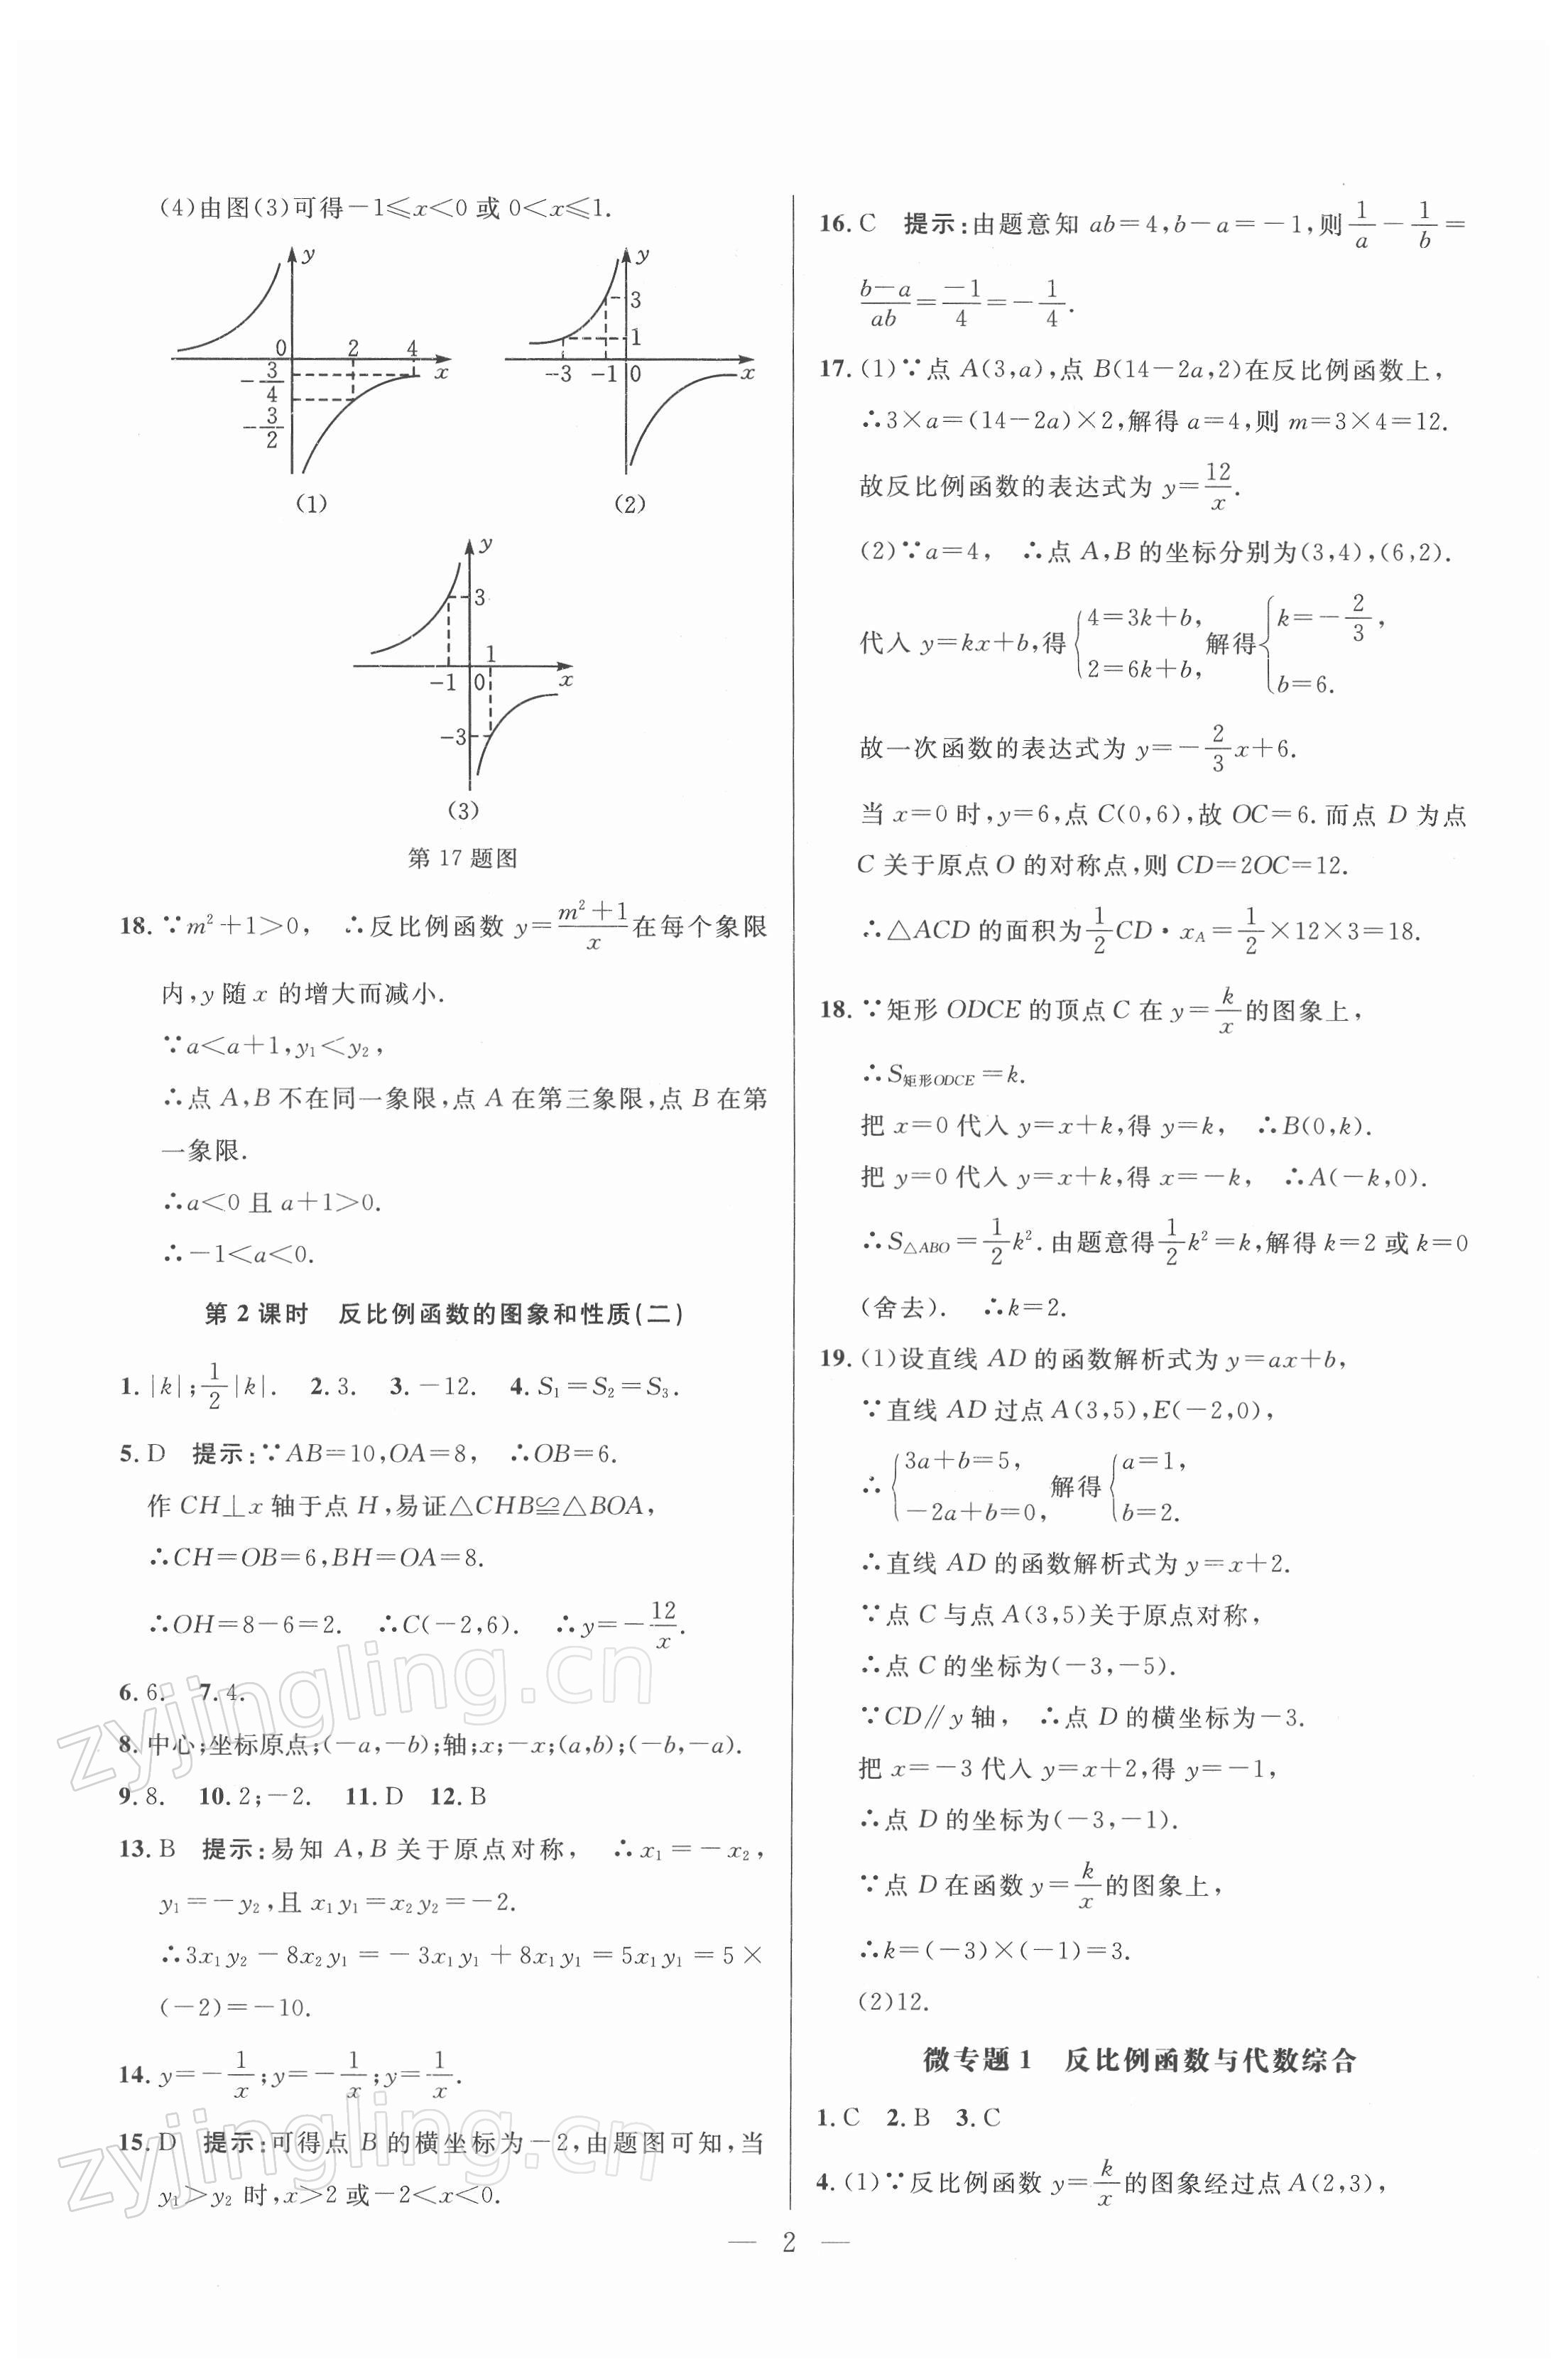 (4)由图(3)可得-1≤x<0 或 0<x≤1.
y
0 2 4 x
-3/4
-3/2
(1)
y
3
1
-3 -1 0 x
(2)
y
3
1
-1 0 x
-3
(3)
第 17 题图
18. ∵m²+1>0, ∴反比例函数 y=(m²+1)/x 在每个象限
内,y 随 x 的增大而减小.
∵a<a+1,y₁<y₂,
∴点 A,B 不在同一象限,点 A 在第三象限,点 B 在第
一象限.
∴a<0 且 a+1>0.
∴-1<a<0.
第 2 课时 反比例函数的图象和性质(二)
1. |k|;1/2|k|. 2. 3. 3. -12. 4. S₁=S₂=S₃.
5. D 提示:∵AB=10,OA=8, ∴OB=6.
作 CH⊥x 轴于点 H,易证△CHB≌△BOA,
∴CH=OB=6,BH=OA=8.
∴OH=8-6=2. ∴C(-2,6). ∴y=-12/x.
6. 6. 7. 4.
8. 中心;坐标原点;(-a,-b);轴;x;-x;(a,b);(-b,-a).
9. 8. 10. 2;-2. 11. D 12. B
13. B 提示:易知 A,B 关于原点对称, ∴x₁=-x₂,
y₁=-y₂,且 x₁y₁=x₂y₂=-2.
∴3x₁y₂-8x₂y₁=-3x₁y₁+8x₁y₁=5x₁y₁=5×
(-2)=-10.
14. y=-1/x;y=-1/x;y=1/x.
15. D 提示:可得点 B 的横坐标为-2,由题图可知,当
y₁>y₂ 时,x>2 或-2<x<0.
16. C 提示:由题意知 ab=4,b-a=-1,则1/a-1/b=
(b-a)/ab=-1/4=-1/4.
17. (1)∵点 A(3,a),点 B(14-2a,2)在反比例函数上,
∴3×a=(14-2a)×2,解得 a=4,则 m=3×4=12.
故反比例函数的表达式为 y=12/x.
(2)∵a=4, ∴点 A,B 的坐标分别为(3,4),(6,2).
代入 y=kx+b,得{4=3k+b, 2=6k+b, 解得{k=-2/3, b=6.
故一次函数的表达式为 y=-2/3x+6.
当 x=0 时,y=6,点 C(0,6),故 OC=6. 而点 D 为点
C 关于原点 O 的对称点,则 CD=2OC=12.
∴△ACD 的面积为1/2CD·x_A=1/2×12×3=18.
18. ∵矩形 ODCE 的顶点 C 在 y=k/x的图象上,
∴S矩形ODCE=k.
把 x=0 代入 y=x+k,得 y=k, ∴B(0,k).
把 y=0 代入 y=x+k,得 x=-k, ∴A(-k,0).
∴S△ABO=1/2k². 由题意得1/2k²=k,解得 k=2 或 k=0
(舍去). ∴k=2.
19. (1)设直线 AD 的函数解析式为 y=ax+b,
∵直线 AD 过点 A(3,5),E(-2,0),
∴{3a+b=5, -2a+b=0, 解得{a=1, b=2.
∴直线 AD 的函数解析式为 y=x+2.
∵点 C 与点 A(3,5)关于原点对称,
∴点 C 的坐标为(-3,-5).
∵CD∥y 轴, ∴点 D 的横坐标为-3.
把 x=-3 代入 y=x+2,得 y=-1,
∴点 D 的坐标为(-3,-1).
∵点 D 在函数 y=k/x的图象上,
∴k=(-3)×(-1)=3.
(2)12.
微专题 1 反比例函数与代数综合
1. C 2. B 3. C
4. (1)∵反比例函数 y=k/x的图象经过点 A(2,3),
— 2 —
zyjingling.cn
zyjingling.cn